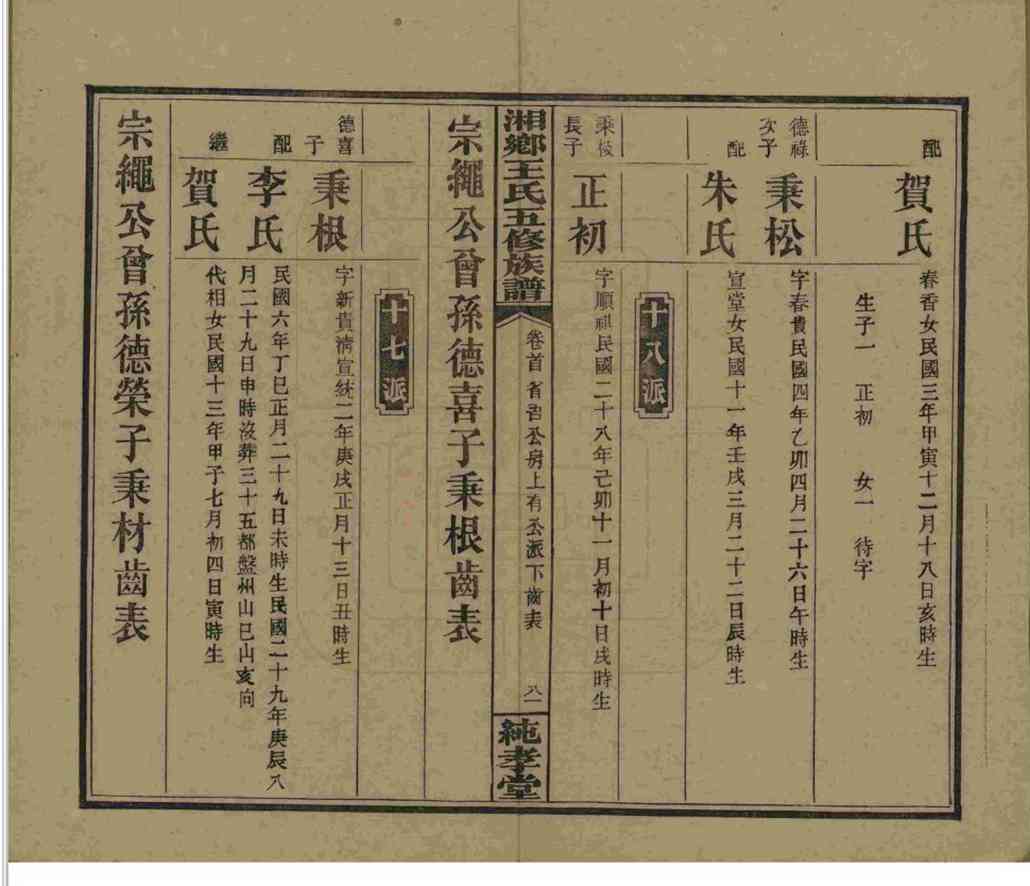 配
賀氏
春香女民國三年甲寅十二月十八日亥時生
生子一 正初 女一 待字
德祿
次子
秉松
字春貴民國四年乙卯四月二十六日午時生
配
朱氏
宣堂女民國十一年壬戌三月二十二日辰時生
十八派
秉松
長子
正初
字順祺民國二十八年己卯十一月初十日戌時生
湘鄉王氏五修族譜
卷首 省吾公房上有公派下齒表
八一
純孝堂
宗繩公曾孫德喜子秉根齒表
十七派
德喜
子
秉根
字新貴清宣統二年庚戌正月十三日丑時生
配
李氏
民國六年丁巳正月二十九日未時生民國二十九年庚辰八
月二十九日申時沒葬三十五都盤州山巳山亥向
繼
賀氏
代相女民國十三年甲子七月初四日寅時生
宗繩公曾孫德榮子秉材齒表